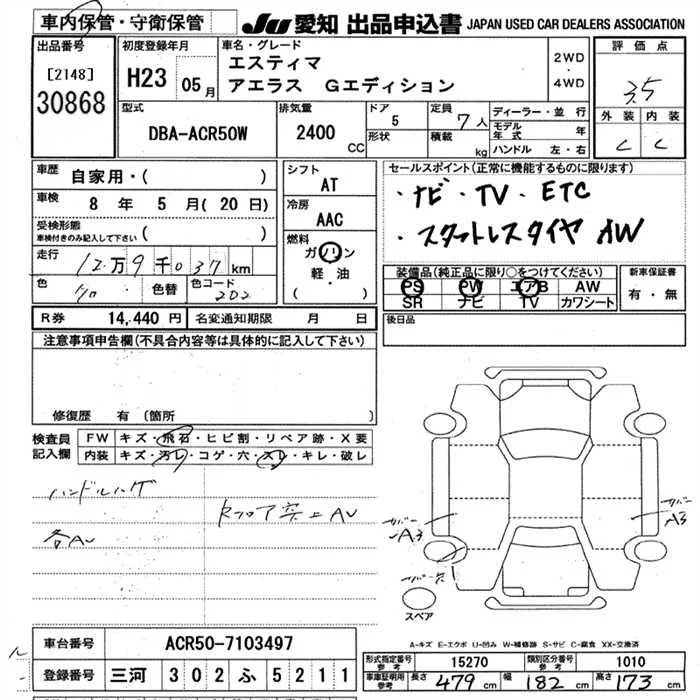 車内保管・守衛保管
JU 愛知 出品申込書 JAPAN USED CAR DEALERS ASSOCIATION
出品番号
[2148]
30868
初度登録年月
H23 05月
車名・グレード
エスティマ
アエラス Gエディション
2WD
・
4WD
評価点
3.5
外装 内装
C C
型式
DBA-ACR50W
排気量
2400 CC
ドア
5
形状
定員
7人
積載
kg
ディーラー・並行
モデル年式 年
ハンドル 左・右
車歴 自家用・( )
車検 8 年 5 月( 20 日)
受検形態
車検付きのみ記入して下さい ( )
走行 12万9千037km
色 色替 色コード 202
シフト
AT
冷房
AAC
燃料
ガソリン
軽・油
( )
セールスポイント(正常に機能するものに限ります)
・ナビ・TV・ETC
・スタットレスタイヤ AW
装備品(純正品に限り○をつけてください)
PS PW エアB AW
SR ナビ TV カワシート
新車保証書
有・無
R券 14,440円 名変通知期限 月 日
後日品
注意事項申告欄(不具合内容等は具体的に記入して下さい)
修復歴 有 (箇所
検査員記入欄
FW キズ・飛石・ヒビ割・リペア跡・X要
内装 キズ・汚レ・コゲ・穴・スレ・キレ・破レ
ハンドルハゲ
各AU
カバー
A3
カバー
A3
スペア
A-キズ E-エクボ U-凹み W-補修跡 S-サビ C-腐食 XX-交換済
車台番号 ACR50-7103497
登録番号 三河 302 ふ 5211
形式指定番号 参考 15270 類別区分番号 参考 1010
車庫証明用 参考 長さ 479 cm 幅 182 cm 高さ 173 cm